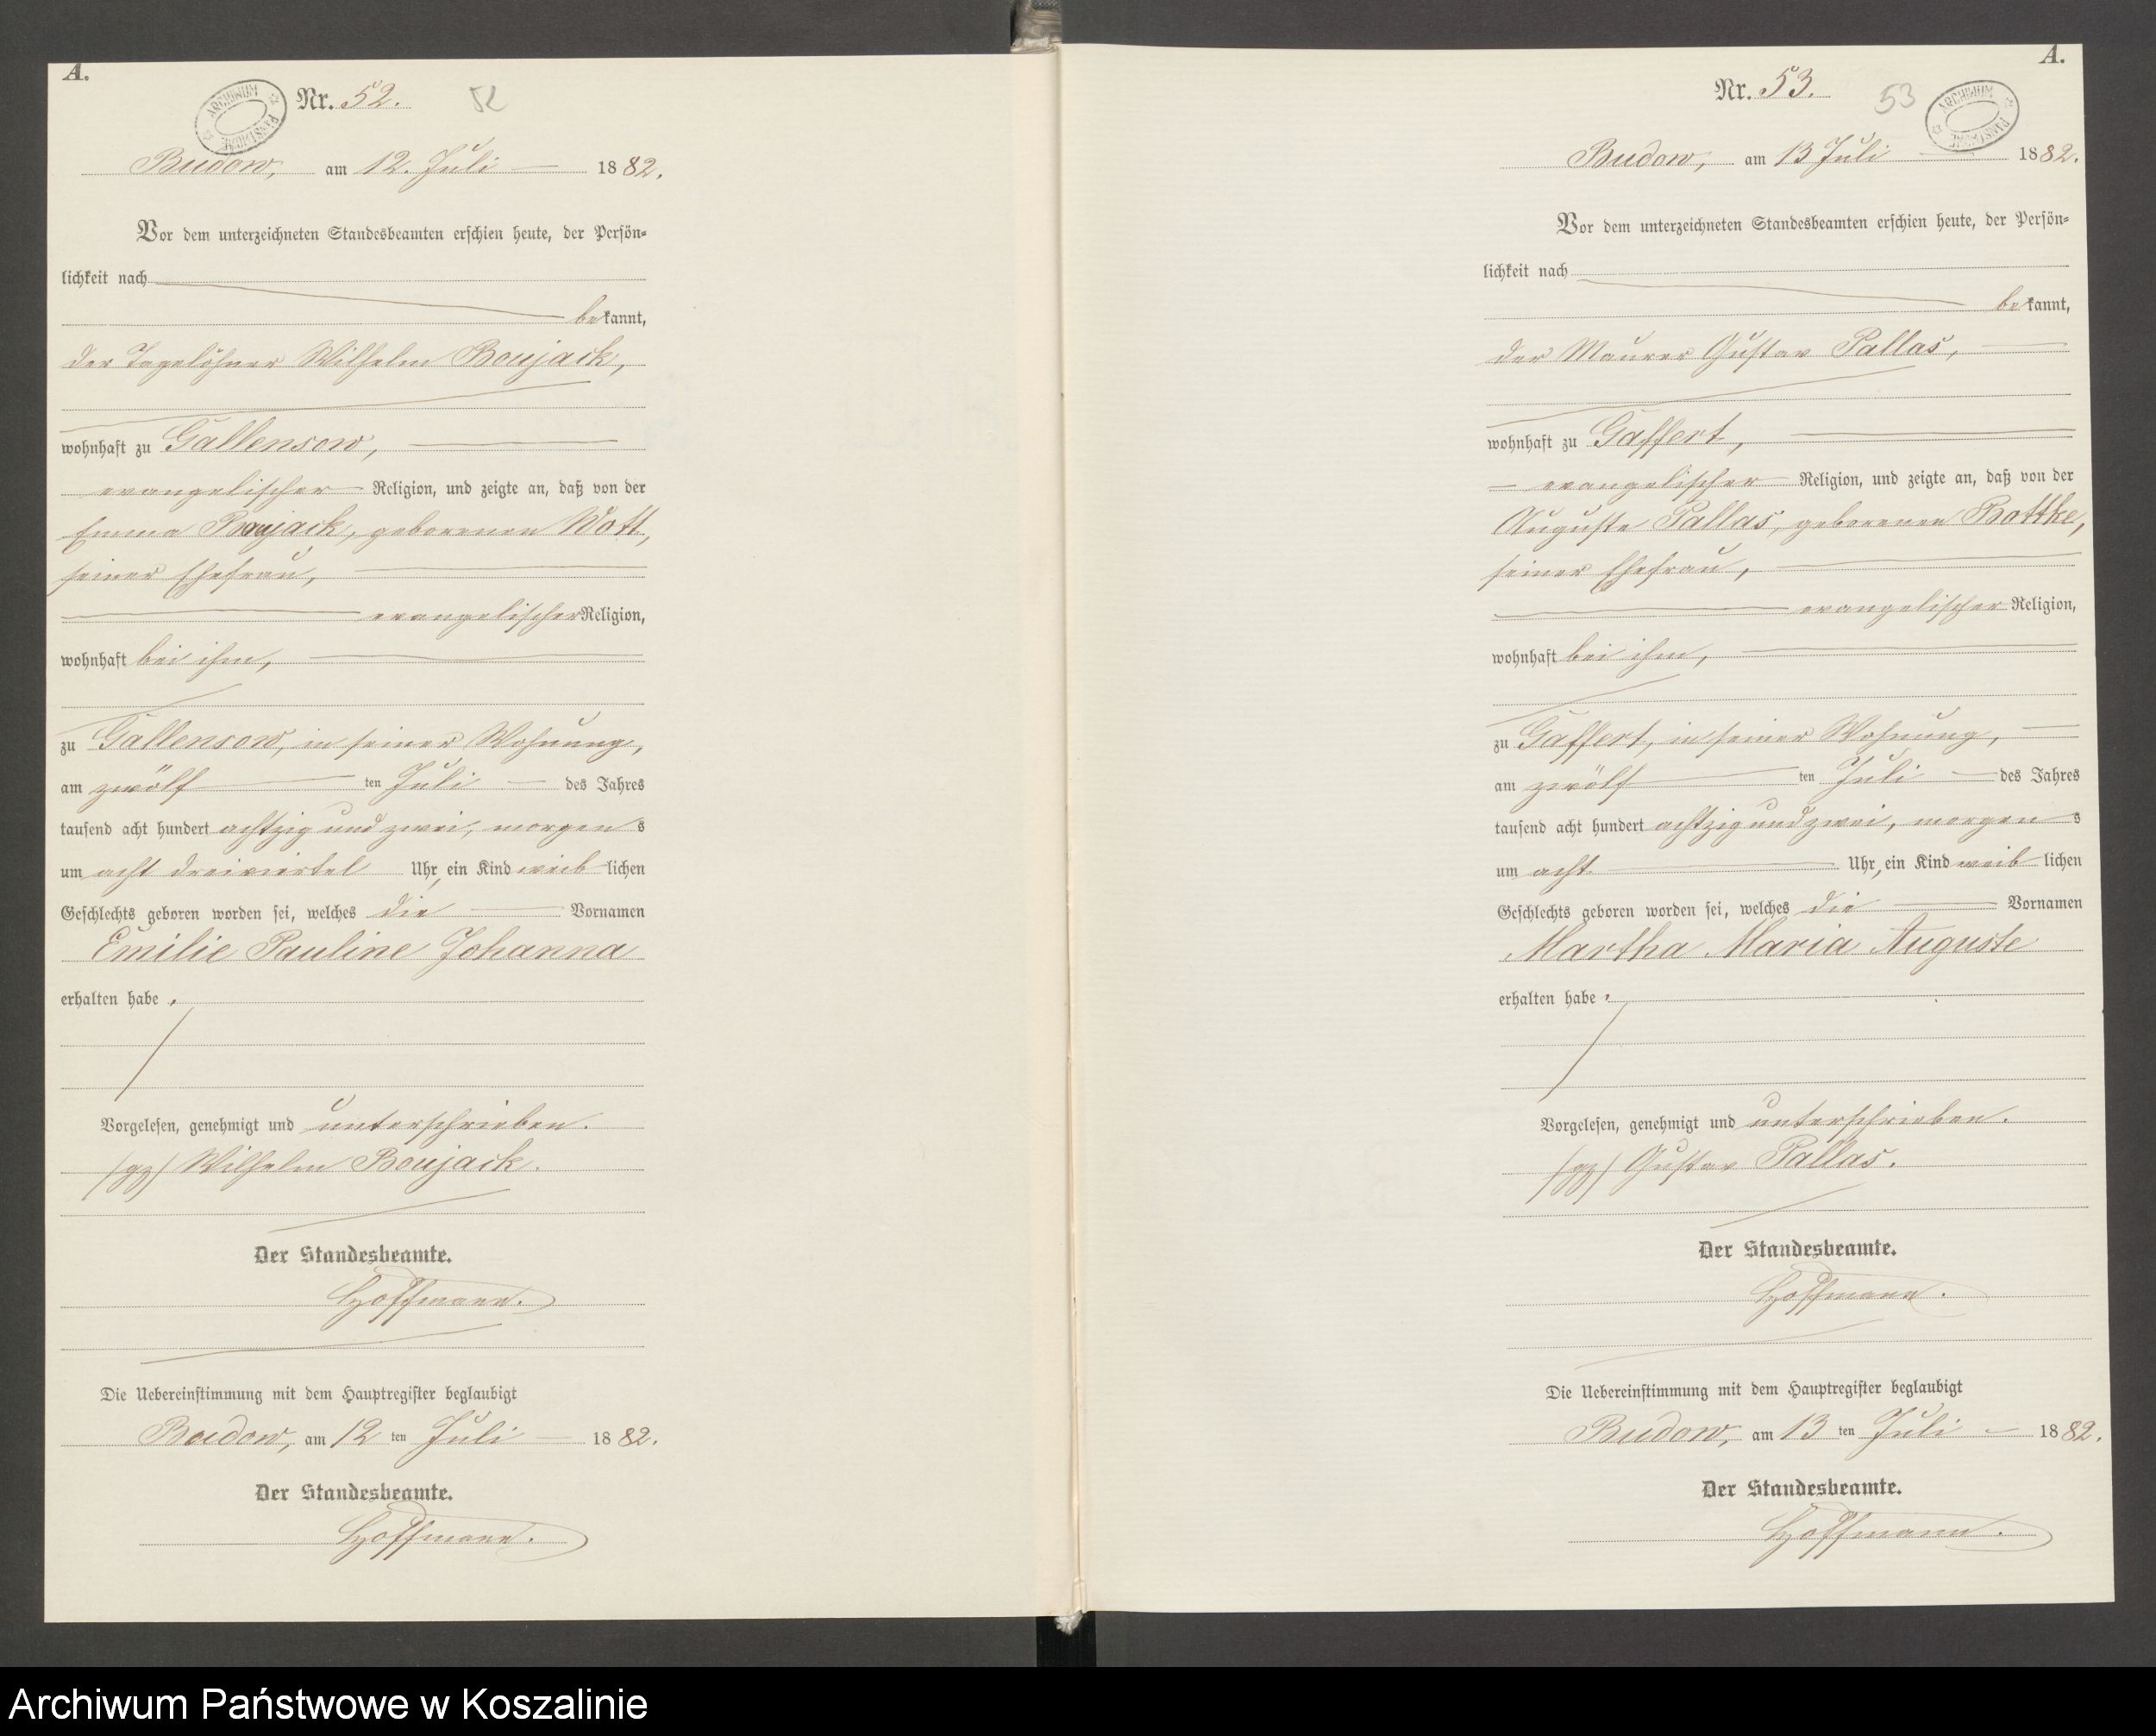 A.
ARCHIWUM PAŃSTWOWE
Nr. 52. 52
Budow, am 12. Juli 1882.
Vor dem unterzeichneten Standesbeamten erschien heute, der Persön-
lichkeit nach
bekannt,
der Tagelöhner Wilhelm Boujack,
wohnhaft zu Gallensow,
evangelischer Religion, und zeigte an, daß von der
Emma Boujack, geborenen Wott,
seiner Ehefrau,
evangelischer Religion,
wohnhaft bei ihm,
zu Gallensow, in seiner Wohnung,
am zwölf ten Juli des Jahres
tausend acht hundert achtzig und zwei, morgens
um acht dreiviertel Uhr, ein Kind weiblichen
Geschlechts geboren worden sei, welches die Vornamen
Emilie Pauline Johanna
erhalten habe.
Vorgelesen, genehmigt und unterschrieben.
/gz/ Wilhelm Boujack.
Der Standesbeamte.
Hoffmann.
Die Uebereinstimmung mit dem Hauptregister beglaubigt
Budow, am 12 ten Juli 1882.
Der Standesbeamte.
Hoffmann.
A.
Nr. 53. 53
ARCHIWUM PAŃSTWOWE
Budow, am 13 Juli 1882.
Vor dem unterzeichneten Standesbeamten erschien heute, der Persön-
lichkeit nach
bekannt,
der Maurer Gustav Pallas,
wohnhaft zu Gaffert,
evangelischer Religion, und zeigte an, daß von der
Auguste Pallas, geborenen Bottke,
seiner Ehefrau,
evangelischer Religion,
wohnhaft bei ihm,
zu Gaffert, in seiner Wohnung,
am zwölf ten Juli des Jahres
tausend acht hundert achtzig und zwei, morgens
um acht Uhr, ein Kind weiblichen
Geschlechts geboren worden sei, welches die Vornamen
Martha Maria Auguste
erhalten habe.
Vorgelesen, genehmigt und unterschrieben.
/gz/ Gustav Pallas.
Der Standesbeamte.
Hoffmann.
Die Uebereinstimmung mit dem Hauptregister beglaubigt
Budow, am 13 ten Juli 1882.
Der Standesbeamte.
Hoffmann.
Archiwum Państwowe w Koszalinie